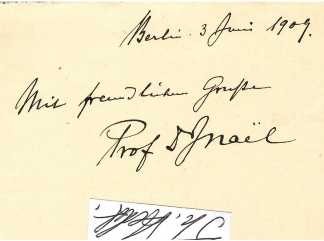 Berlin. 3 Juni 1909.
Mit freundlichen Gruße
Prof Dr Israël